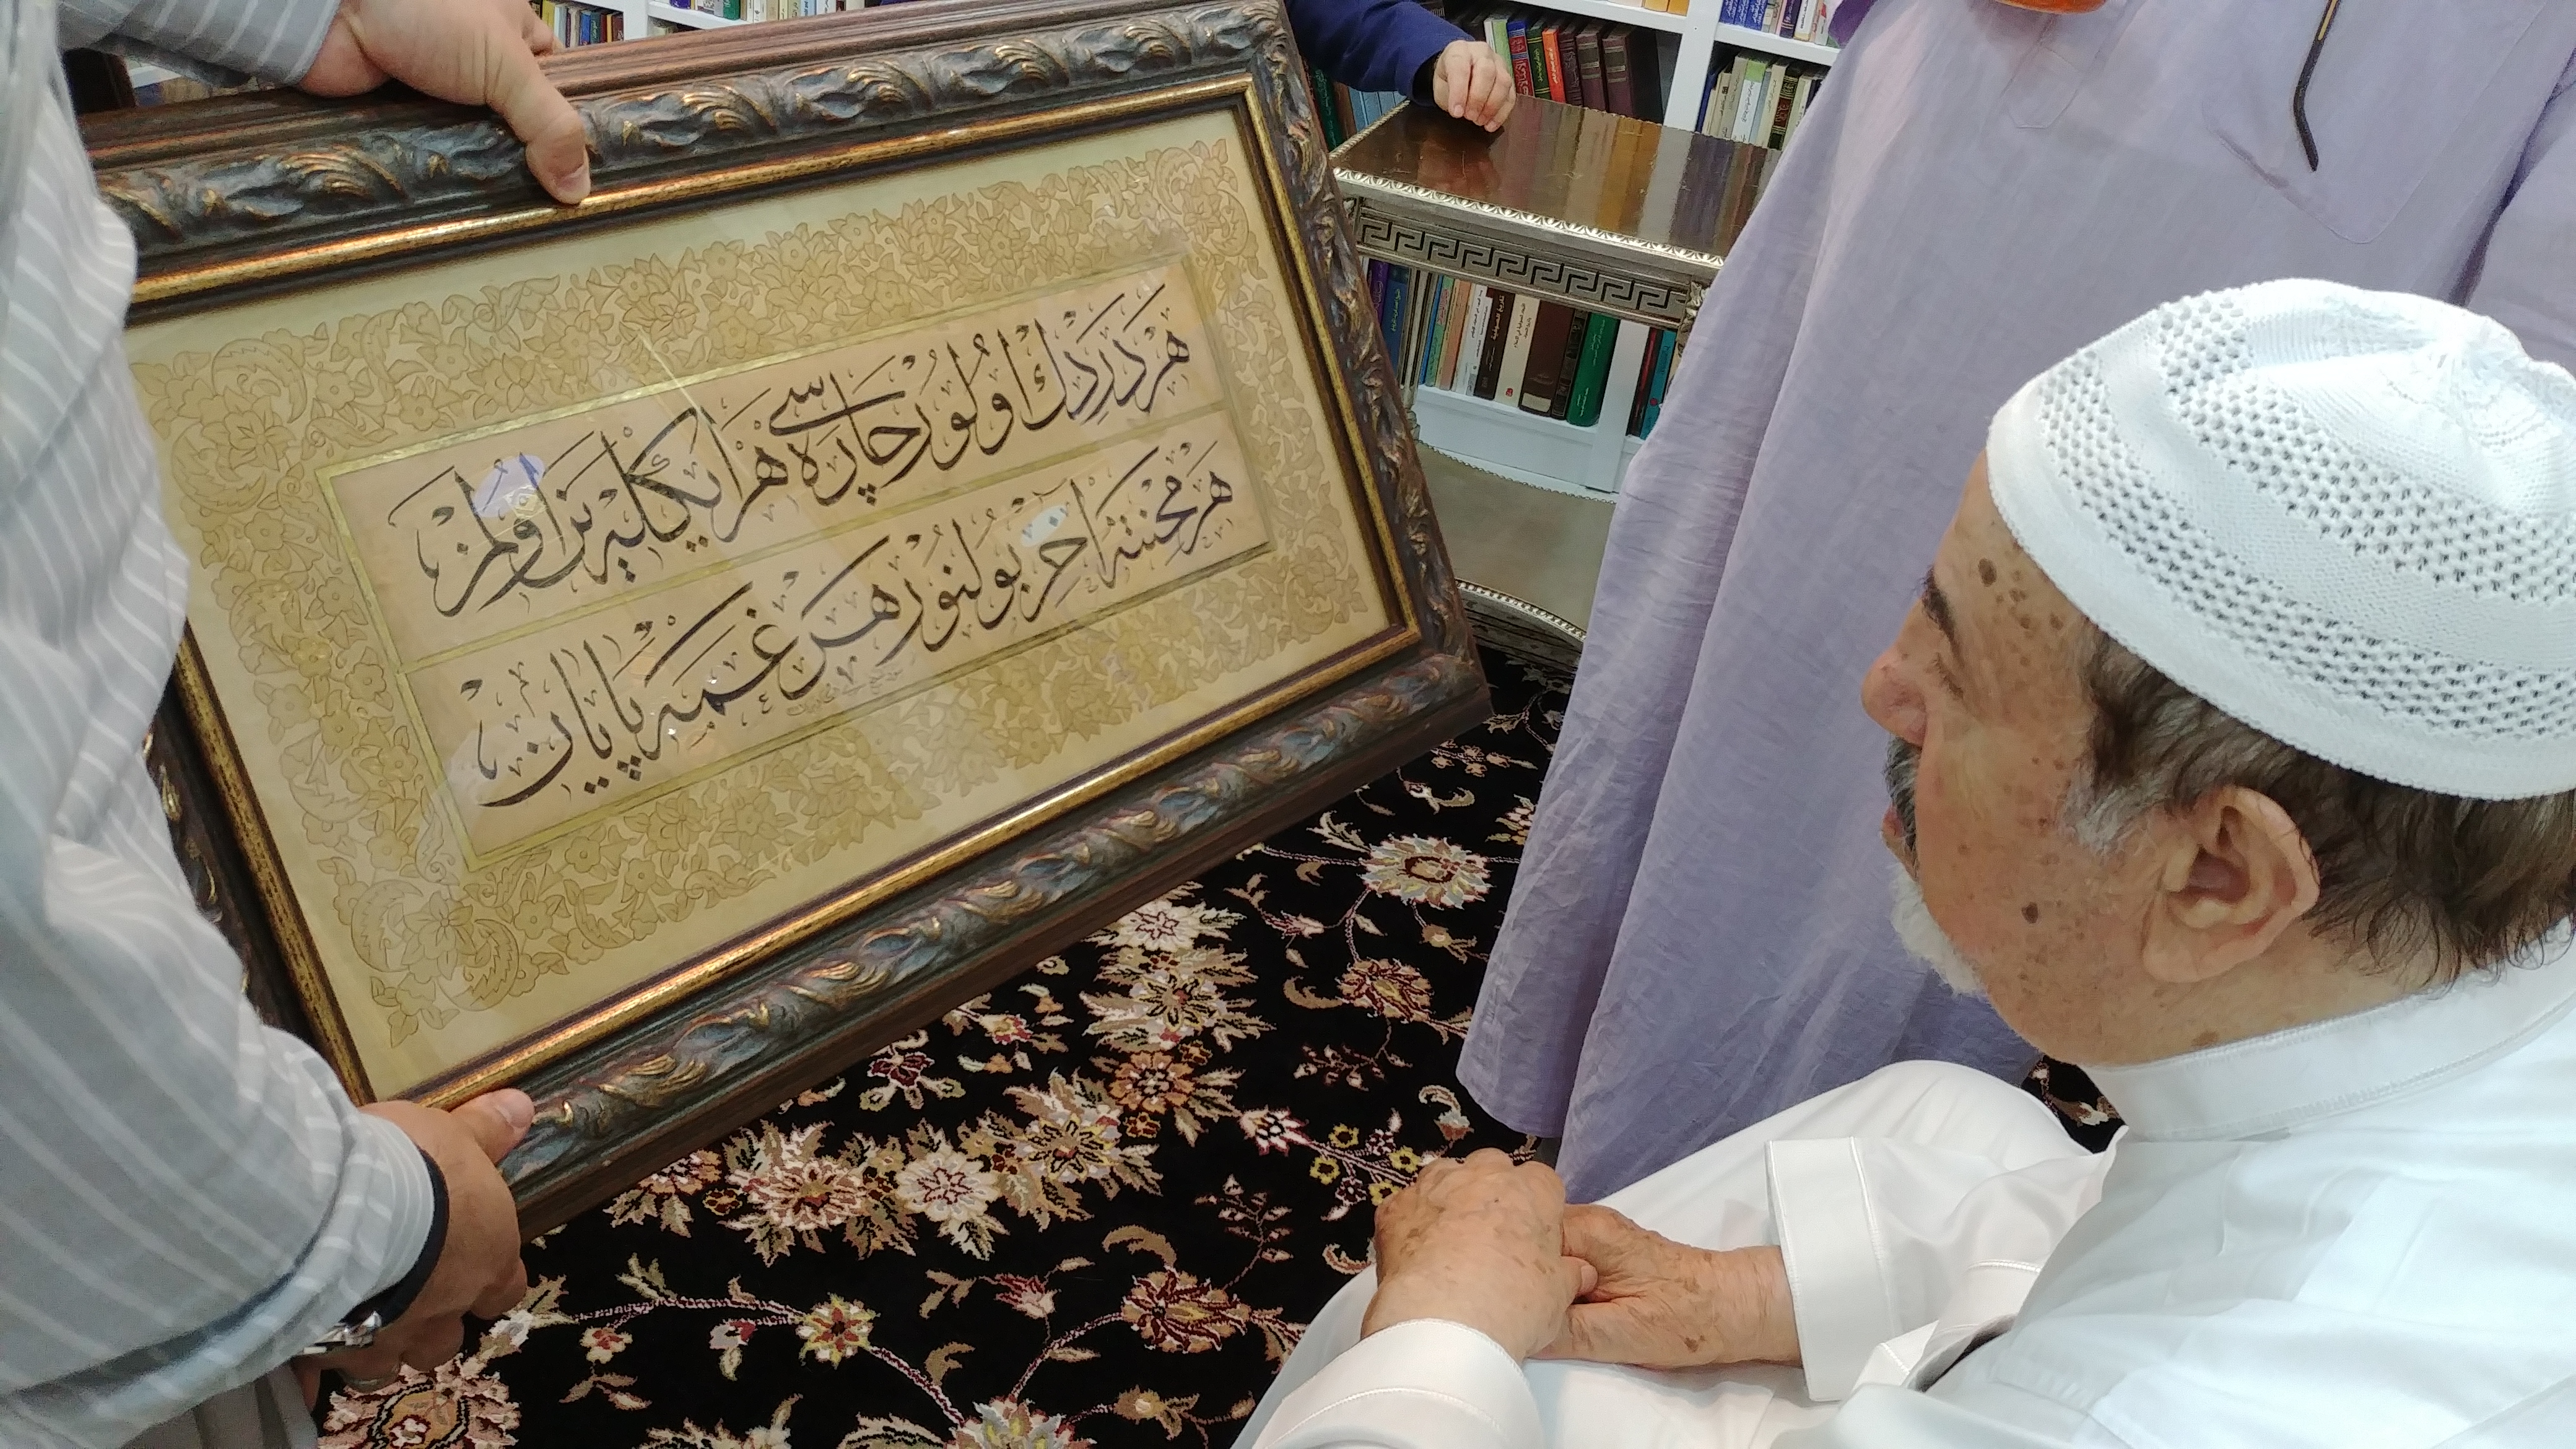 هَر دَردِك اولُور چَارَه‌سى هَر ايكلِيَن اولمَز
هَر مِحنَتَه آخِر بُولنُور هَر غَمَه پَايَان